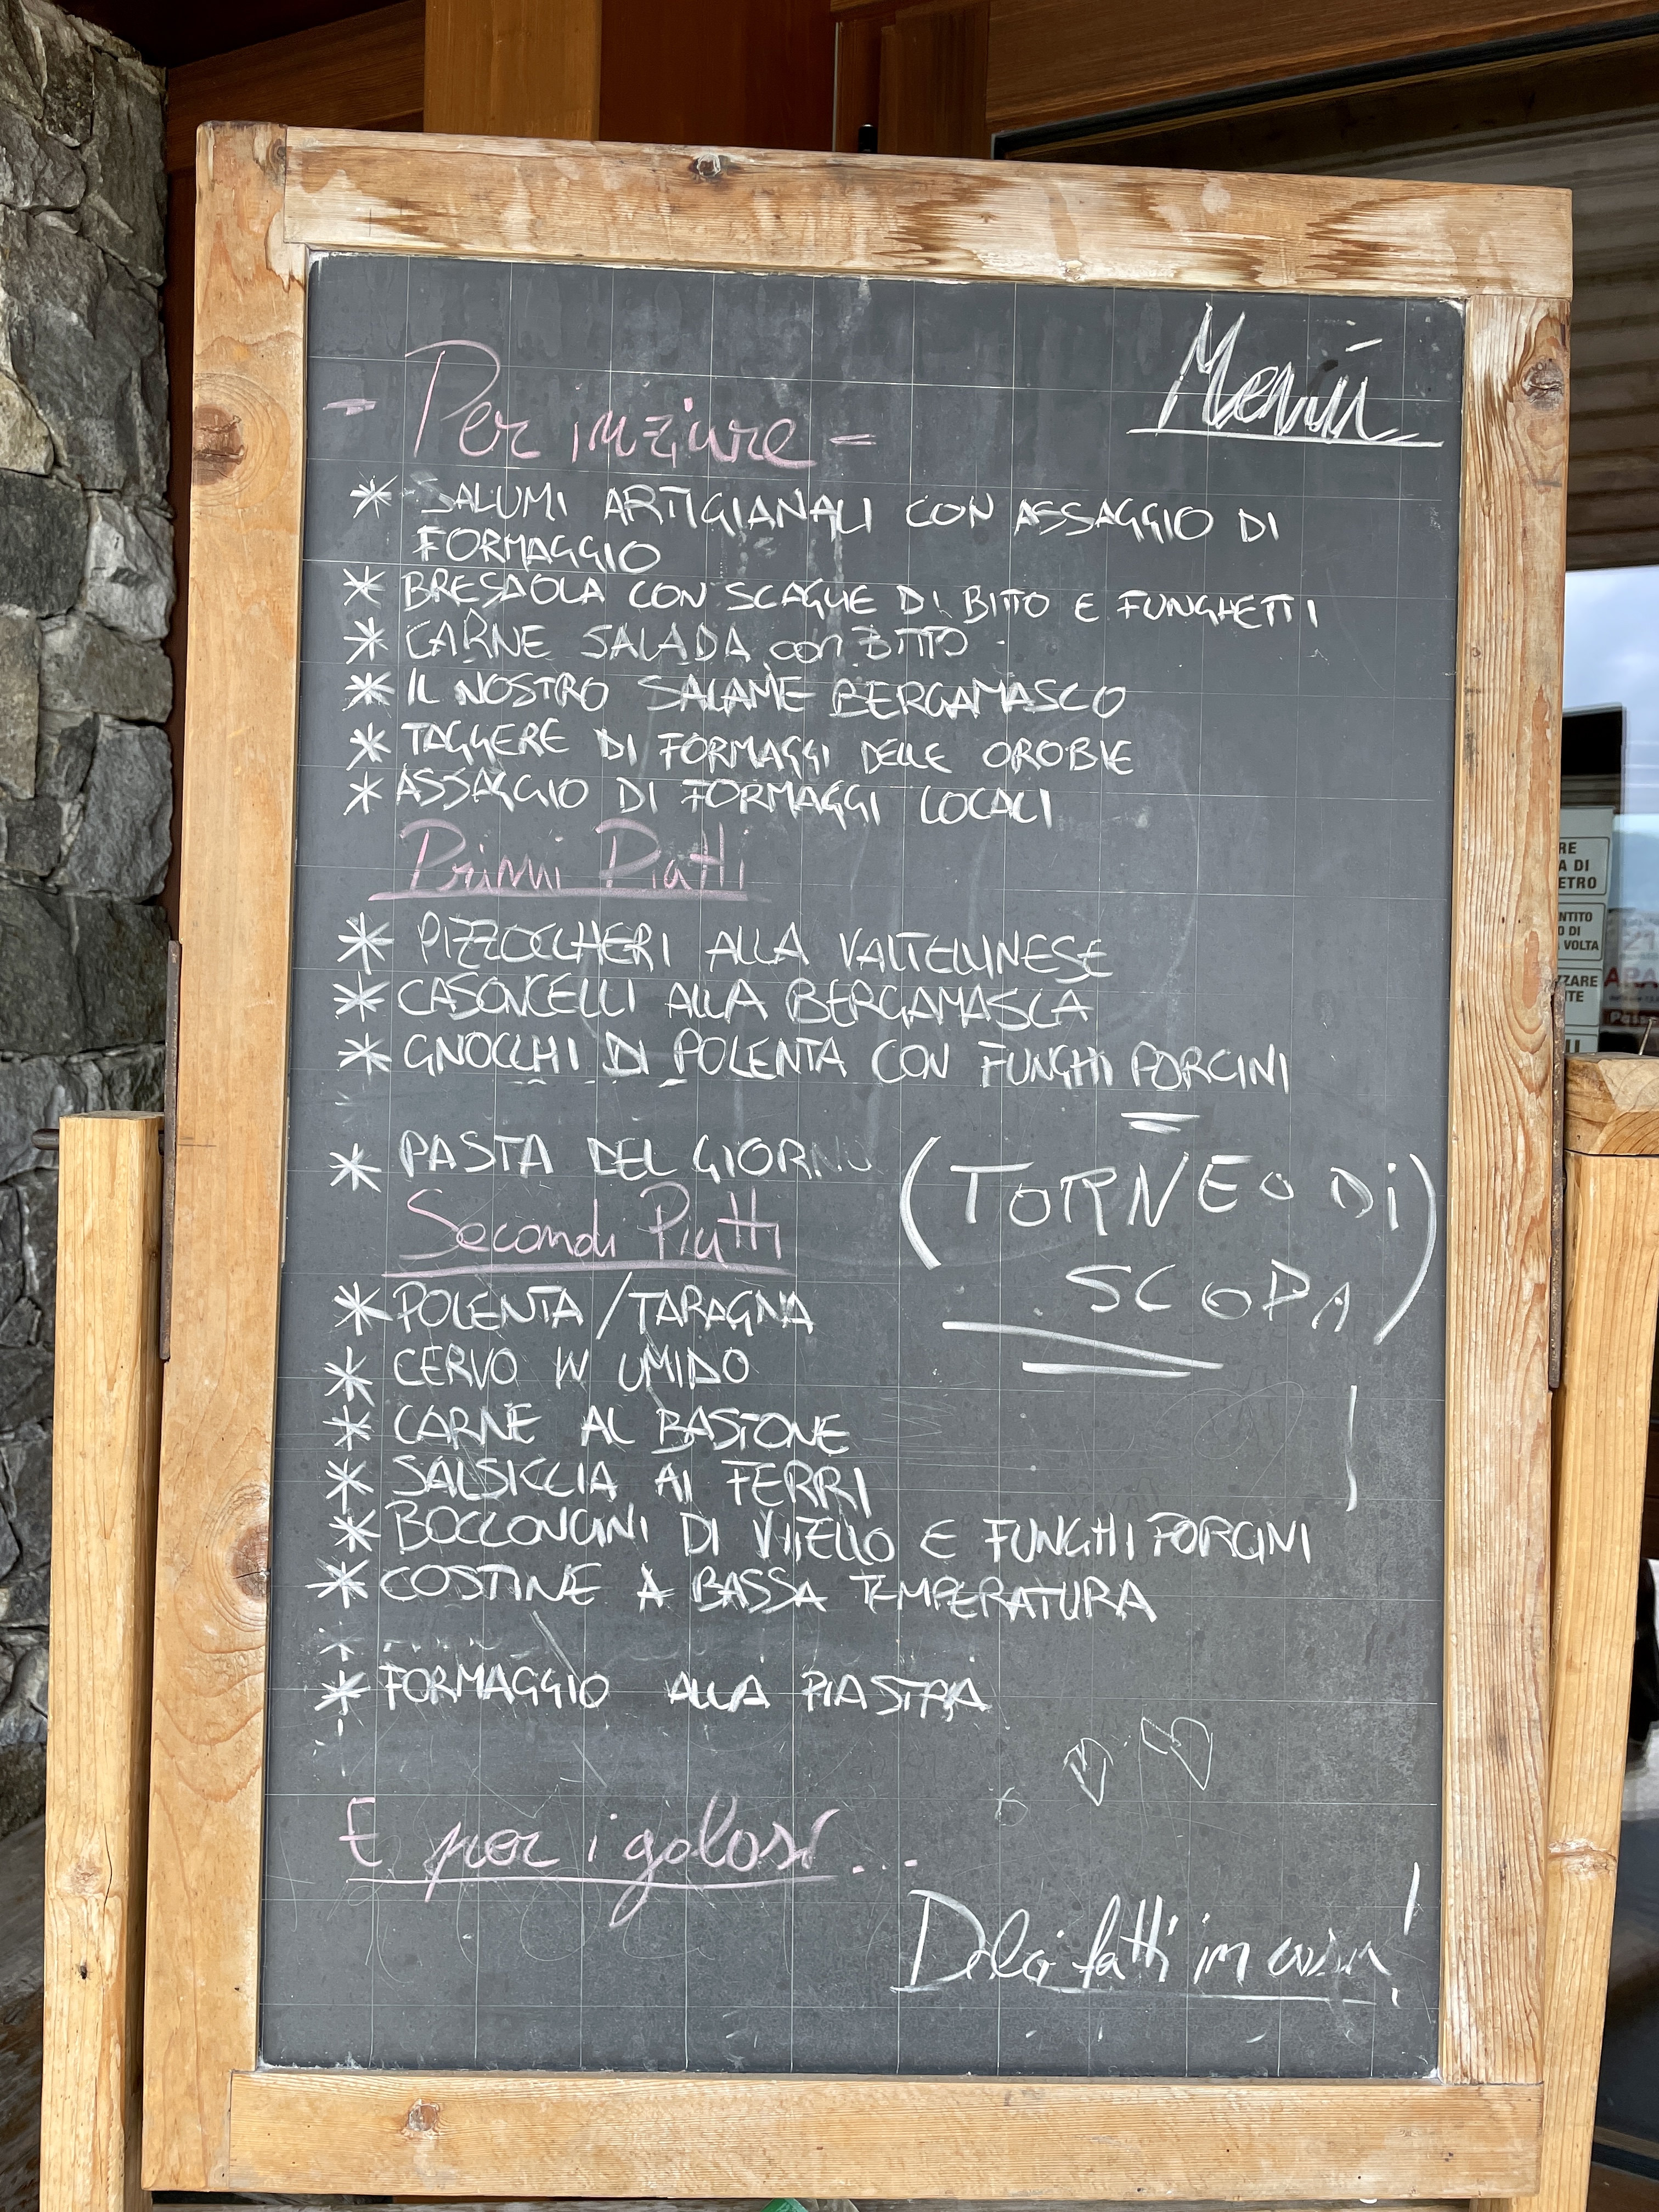 Menù
- Per iniziare -
* SALUMI ARTIGIANALI CON ASSAGGIO DI
FORMAGGIO
* BRESAOLA CON SCAGLIE DI BITTO E FUNGHETTI
* CARNE SALADA con BITTO
* IL NOSTRO SALAME BERGAMASCO
* TAGGERE DI FORMAGGI DELLE OROBIE
* ASSAGGIO DI FORMAGGI LOCALI
Primi Piatti
* PIZZOCCHERI ALLA VALTELLINESE
* CASONCELLI ALLA BERGAMASCA
* GNOCCHI DI POLENTA CON FUNGHI PORCINI
* PASTA DEL GIORNO
(TORNEO DI
SCOPA)
Secondi Piatti
* POLENTA / TARAGNA
* CERVO IN UMIDO
* CARNE AL BASTONE
* SALSICCIA AI FERRI
* BOCCONCINI DI VITELLO E FUNGHI PORCINI
* COSTINE A BASSA TEMPERATURA
* FORMAGGIO ALLA PIASTRA
E per i golosi...
Dolci fatti in casa!
RE
A DI
ETRO
NTITO
O DI
VOLTA
ZZARE
NTE